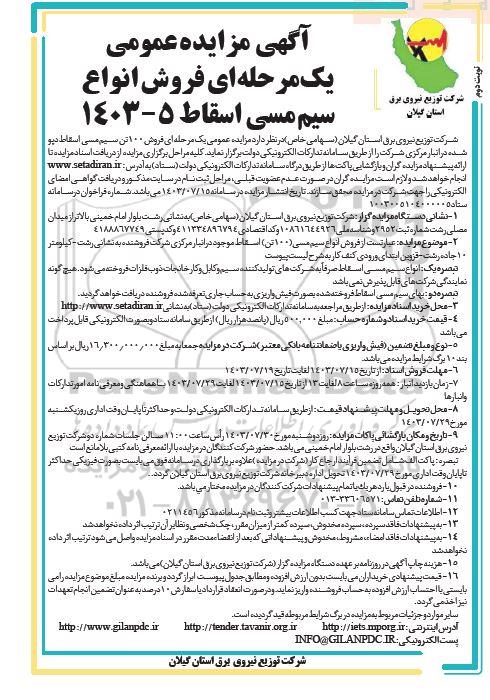 آگهی مزایده عمومی
یک مرحله‌ای فروش انواع
سیم مسی اسقاط ۵-۱۴۰۳
نوبت دوم
شرکت توزیع نیروی برق
استان گیلان
شرکت توزیع نیروی برق استان گیلان (سهامی خاص) در نظر دارد مزایده عمومی یک مرحله‌ای فروش ۱۰۰ تن سیم مسی اسقاط دپو
شده در انبار مرکزی شرکت را از طریق سامانه تدارکات الکترونیکی دولت برگزار نماید. کلیه مراحل برگزاری مزایده از دریافت اسناد مزایده تا
ارائه پیشنهاد مزایده گران و بازگشایی پاکت‌ها از طریق درگاه سامانه تدارکات الکترونیکی دولت (ستاد) به آدرس: www.setadiran.ir
انجام خواهد شد و لازم است مزایده گران در صورت عدم عضویت قبلی، مراحل ثبت نام در سایت مذکور و دریافت گواهی امضای
الکترونیکی را جهت شرکت در مزایده محقق سازند. تاریخ انتشار مزایده در سامانه ۱۴۰۳/۰۷/۱۵ می‌باشد. شماره فراخوان در سامانه
ستاد
۱-نشانی دستگاه مزایده گزار: شرکت توزیع نیروی برق استان گیلان (سهامی خاص) به نشانی رشت بلوار امام خمینی بالاتر از میدان
مصلی رشت شماره ثبت ۲۹۵۲ و شناسه ملی ۱۰۸۶۱۶۴۴۹۲۶ و کد اقتصادی ۴۱۱۳۳۴۸۹۶۷۹۴ و کد پستی ۴۱۸۸۸۶۷۷۴۹
۲-موضوع مزایده: عبارتست از فروش انواع سیم مسی (۱۰۰ تن) اسقاط موجود در انبار مرکزی شرکت فروشنده به نشانی رشت - کیلومتر
۱۰ جاده رشت - قزوین ابتدای ورودی کنف کار به شرح لیست پیوست
تبصره یک: انواع سیم مسی اسقاط صرفاً به شرکت‌های تولیدکننده سیم و کابل و کارخانجات ذوب فلزات فروخته می‌شود. هیچ گونه
نمایندگی شرکت‌های قابل پذیرش نمی باشد
تبصره دو: بهای سیم مسی اسقاط فروخته شده بصورت فیش واریزی به حساب جاری تعرفه شده فروشنده دریافت خواهد گردید.
۳-محل خرید اسناد مزایده: از طریق مراجعه به سامانه تدارکات الکترونیکی دولت (ستاد) به نشانی http://www.setadiran.ir
۴-قیمت خرید اسناد و شماره حساب: مبلغ ۵۰۰,۰۰۰ ریال (پانصد هزار ریال) از طریق سامانه ستاد و بصورت الکترونیکی قابل پرداخت
می باشد
۵-نوع و مبلغ تضمین (فیش واریزی یا ضمانتنامه بانکی معتبر) شرکت در مزایده جمعا به مبلغ ۱۶,۳۰۰,۰۰۰,۰۰۰ ریال بر اساس
بند ۱۰ برگ شرایط مزایده می‌باشد.
۶-مهلت فروش اسناد: از تاریخ ۱۴۰۳/۰۷/۱۵ لغایت تاریخ ۱۴۰۳/۰۷/۱۹
۷-زمان بازدید انبار: همه روزه ساعت ۸ لغایت ۱۳ از تاریخ ۱۴۰۳/۰۷/۱۵ لغایت ۱۴۰۳/۰۷/۲۹ با هماهنگی و معرفی نامه امور تدارکات
و انبارها
۸-محل تحویل و مهلت پیشنهاد قیمت: از طریق سامانه تدارکات الکترونیکی دولت و حداکثر تا پایان وقت اداری روز یکشنبه
مورخ ۱۴۰۳/۰۷/۲۹
۹-تاریخ و مکان بازگشائی پاکات مزایده: روز دوشنبه مورخ ۱۴۰۳/۰۷/۳۰ رأس ساعت ۱۱:۰۰ سالن جلسات شماره دو شرکت توزیع
نیروی برق استان گیلان واقع در رشت بلوار امام خمینی می‌باشد. حضور شرکت کنندگان در مزایده با ارائه معرفی نامه کتبی بلامانع است
تبصره: پاکت الف شامل تضمین فرآیند ارجاع کار (شرکت در مزایده) علاوه بر بارگذاری در سامانه فوق می‌بایست بصورت فیزیکی حداکثر
تا پایان وقت اداری مورخ ۱۴۰۳/۰۷/۲۹ تحویل اداره دبیرخانه شرکت توزیع نیروی برق استان گیلان گردد.
۱۰-فروشنده در قبول یا رد هر یک یا تمام پیشنهادات شرکت کنندگان در مزایده مختار می‌باشد.
۱۱-شماره تلفن تماس: ۰۱۳-۳۳۶۰۶۵۷۱
۱۲-اطلاعات تماس سامانه ستاد جهت کسب اطلاعات بیشتر و ثبت نام در سامانه مذکور ۰۲۱۱۴۵۶
۱۳-به پیشنهادات فاقد سپرده، سپرده مخدوش، سپرده کمتر از میزان مقرر، چک شخصی و نظایر آن ترتیب اثر داده نخواهد شد
۱۴-به پیشنهادات فاقد امضاء، مشروط، مخدوش و پیشنهاداتی که بعد از انقضاء مدت مقرر در اسناد مزایده واصل می شود ترتیب اثر داده
نخواهد شد
۱۵-هزینه چاپ آگهی در روزنامه بر عهده دستگاه مزایده گزار (شرکت توزیع نیروی برق استان گیلان) می‌باشد.
۱۶-قیمت پیشنهادی خریداران می بایست بدون ارزش افزوده و مطابق جدول پیوست ابراز گردد و برنده مزایده مبلغ موضوع مزایده را می
بایستی با احتساب ارزش افزوده به حساب فروشنده واریز نماید. و در صورت انعقاد قرارداد یا سفارش ۱۰ درصد به عنوان تضمین انجام تعهدات
نیز اخذ می گردد.
سایر موارد و جزئیات مربوط به مزایده در برگ شرایط مربوطه قید گردیده است.
آدرس اینترنتی: http://iets.mporg.ir http://tender.tavanir.org.ir http://www.gilanpdc.ir
پست الکترونیکی: INFO@GILANPDC.IR
شرکت توزیع نیروی برق استان گیلان